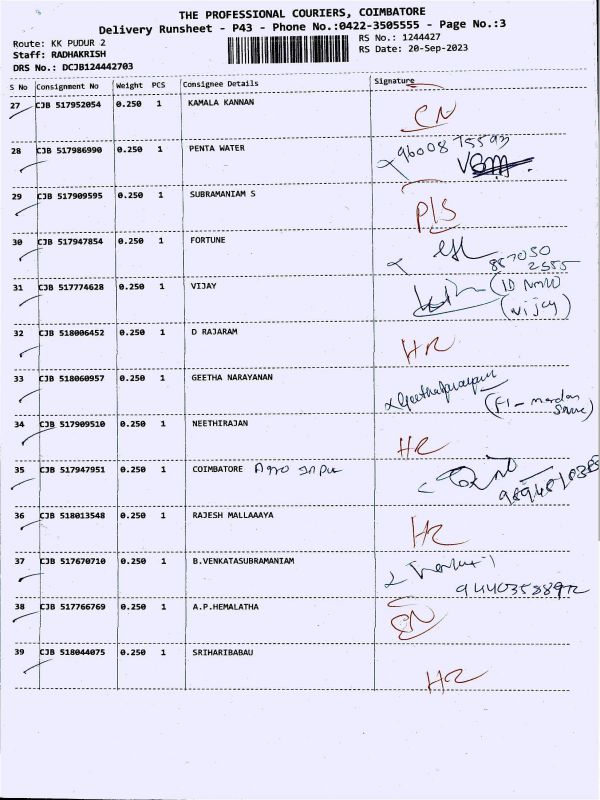 THE PROFESSIONAL COURIERS, COIMBATORE
Delivery Runsheet - P43 - Phone No.:0422-3505555 - Page No.:3
Route: KK PUDUR 2 RS No.: 1244427
Staff: RADHAKRISH RS Date: 20-Sep-2023
DRS No.: DCJB124442703
S No Consignment No Weight PCS Consignee Details Signature
27 CJB 517952054 0.250 1 KAMALA KANNAN CN
28 CJB 517986990 0.250 1 PENTA WATER 96008 75593
29 CJB 517909595 0.250 1 SUBRAMANIAM S P/S
30 CJB 517947854 0.250 1 FORTUNE
857050
2555
31 CJB 517774628 1 VIJAY (ID
(vijay)
32 CJB 518006452 0.250 1 D RAJARAM HR
33 CJB 518060957 0.250 1 GEETHA NARAYANAN
34 CJB 517909510 0.250 1 NEETHIRAJAN HR
35 CJB 517947951 0.250 1 COIMBATORE Agro
36 CJB 518013548 0.250 1 RAJESH MALLAAAYA HR
37 CJB 517670710 0.250 1 B.VENKATASUBRAMANIAM
38 CJB 517766769 0.250 1 A.P.HEMALATHA CN
39 CJB 518044075 0.250 1 SRIHARIBABAU HR